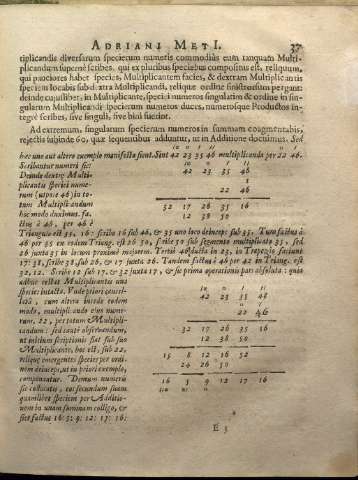 ADRIANI METI. 37
tiplicandis diversarum specierum numeris commodius eum tanquam Multi-
plicandum supernè scribes, qui ex pluribus speciebus compositus est, reliquum,
qui pauciores habet species, Multiplicantem facies, & dextram Multiplicantis
speciem locabis sub dextra Multiplicandi, reliquæ ordine sinistrorsum pergant:
deinde cujuslibet, in Multiplicante, speciei numeros singulatim & ordine in sin-
gularum Multiplicandi specierum numeros duces, numerosque Productos in-
tegrè scribes, sive singuli, sive bini fuerint.
Ad extremum, singularum specierum numeros in summam coagmentabis,
rejectis subinde 60, quæ sequentibus adduntur, ut in Additione docuimus. Sed
hæc uno aut altero exemplo manifesta fient. Sint 42 23 35 46 multiplicanda per 22 46.
Scribuntur numeri sic:
Deinde dextræ Multi- 42 23 35 46
plicantis speciei nume-
rum (utpote 46) in to- 22 46
tum Multiplicandum
hoc modo ducimus. fa- 32 17 26 35 16
ctus à 46, per 46 è 12 38 50
Triangulo est 35, 16: scribo 16 sub 46, & 35 uno loco deinceps sub 35. Tum factus à
46 per 35 ex eodem Triang. est 26 50, scribo 50 sub segmento multiplicato 35, sed
26 juxta 35 in locum proximè majorem. Tertiò 46 ducta in 23, in Trapezio faciunt
17: 38, scribe 38 sub 26, & 17 juxta 26. Tandem factus à 46 per 42 in Triang. est
32, 12. Scribe 12 sub 17, & 32 juxta 17, & sic prima operationis pars absoluta: quia
adhuc restat Multiplicantis una
species intacta. Unde priori cancel-
latâ, cum altera iisdem eodem 42 23 35 46
modo, multiplicando ejus nume-
rum, 22, per totum Multipli- 22 46
candum: sed cautè observandum,
ut initium scriptionis fiat sub suo 32 17 26 35 16
Multiplicante, hoc est, sub 22, 12 38 50
reliqui emergentes species per ordi- 15 8 12 16 52
nem deinceps, ut in priori exemplo, 24 26 50
componantur. Demum numeris
sic collocatis, eos secundum suam 16 5 9 12 17 16
quamlibet speciem per Additio-
nem in unam summam colligo, &
fiet factus 16: 5: 9: 12: 17: 16:
E 3